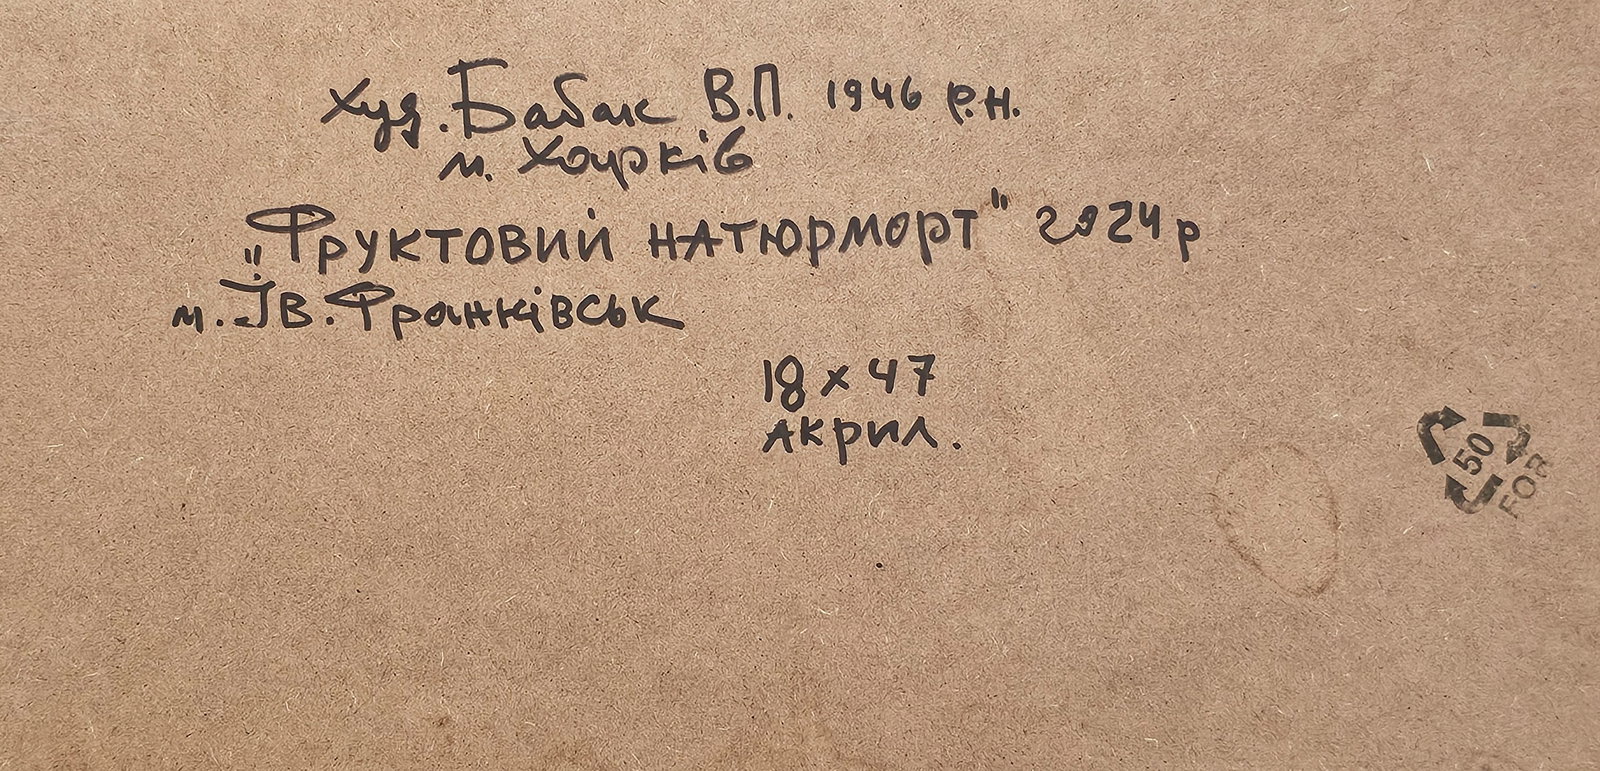 Худ. Бабак В.П. 1946 р.н.
м. Харків
„Фруктовий натюрморт" 2024 р
м. Ів. Франківськ
18 х 47
акрил.
50
FOR